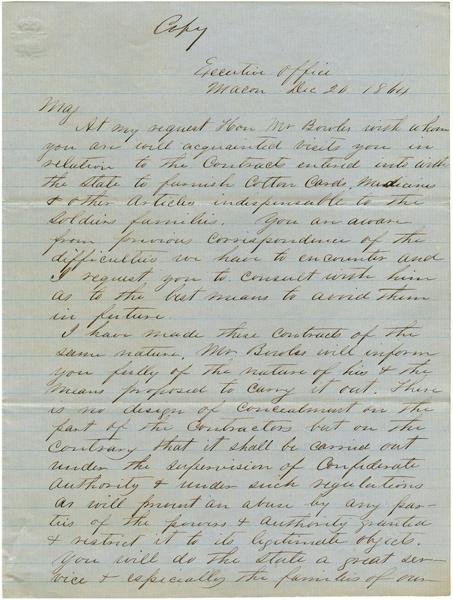 Copy
Executive Office
Macon Dec 20 1864
Maj
At my request Hon Mr Bowles with whom
you are will acquainted visits you in
relation to the Contracts entered into with
the State to furnish Cotton Cards, Medicines
& other Articles indispensable to the
Soldiers families. You are aware
from previous correspondence of the
difficulties we have to encounter and
I request you to consult with him
as to the best means to avoid them
in future.
I have made three Contracts of the
same nature. Mr. Bowles will inform
you fully of the nature of his & the
means proposed to carry it out. There
is no design of concealment on the
part of the Contractors but on the
contrary that it shall be carried out
under the supervision of Confederate
Authority & under such regulations
as will prevent an abuse by any par-
ties of the powers & authority granted
& restrict it to its legitimate objects.
You will do the state a great ser-
vice & especially the families of our